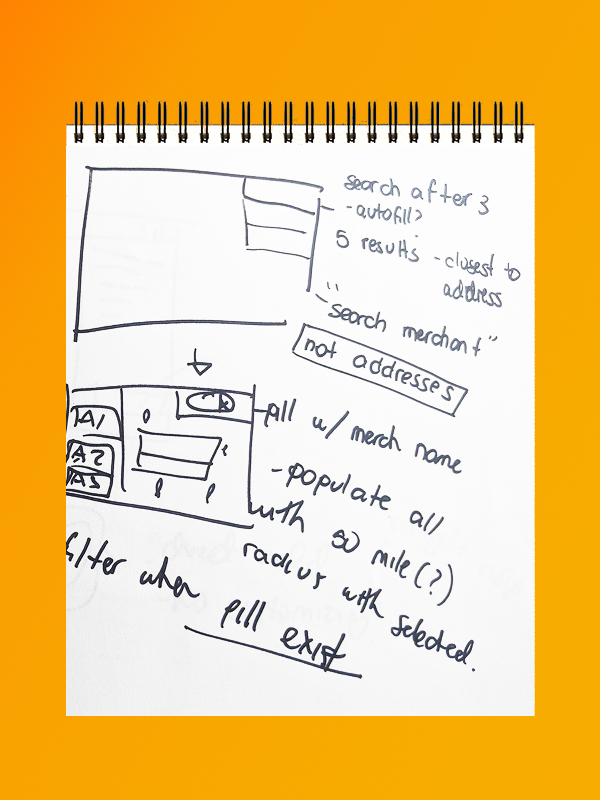 search after 3
- autofill?
5 results - closest to
address
"search merchant"
not addresses
A1
A2
A3
pill w/ merch name
- populate all
with 50 mile (?)
radius with selected.
filter when pill exist